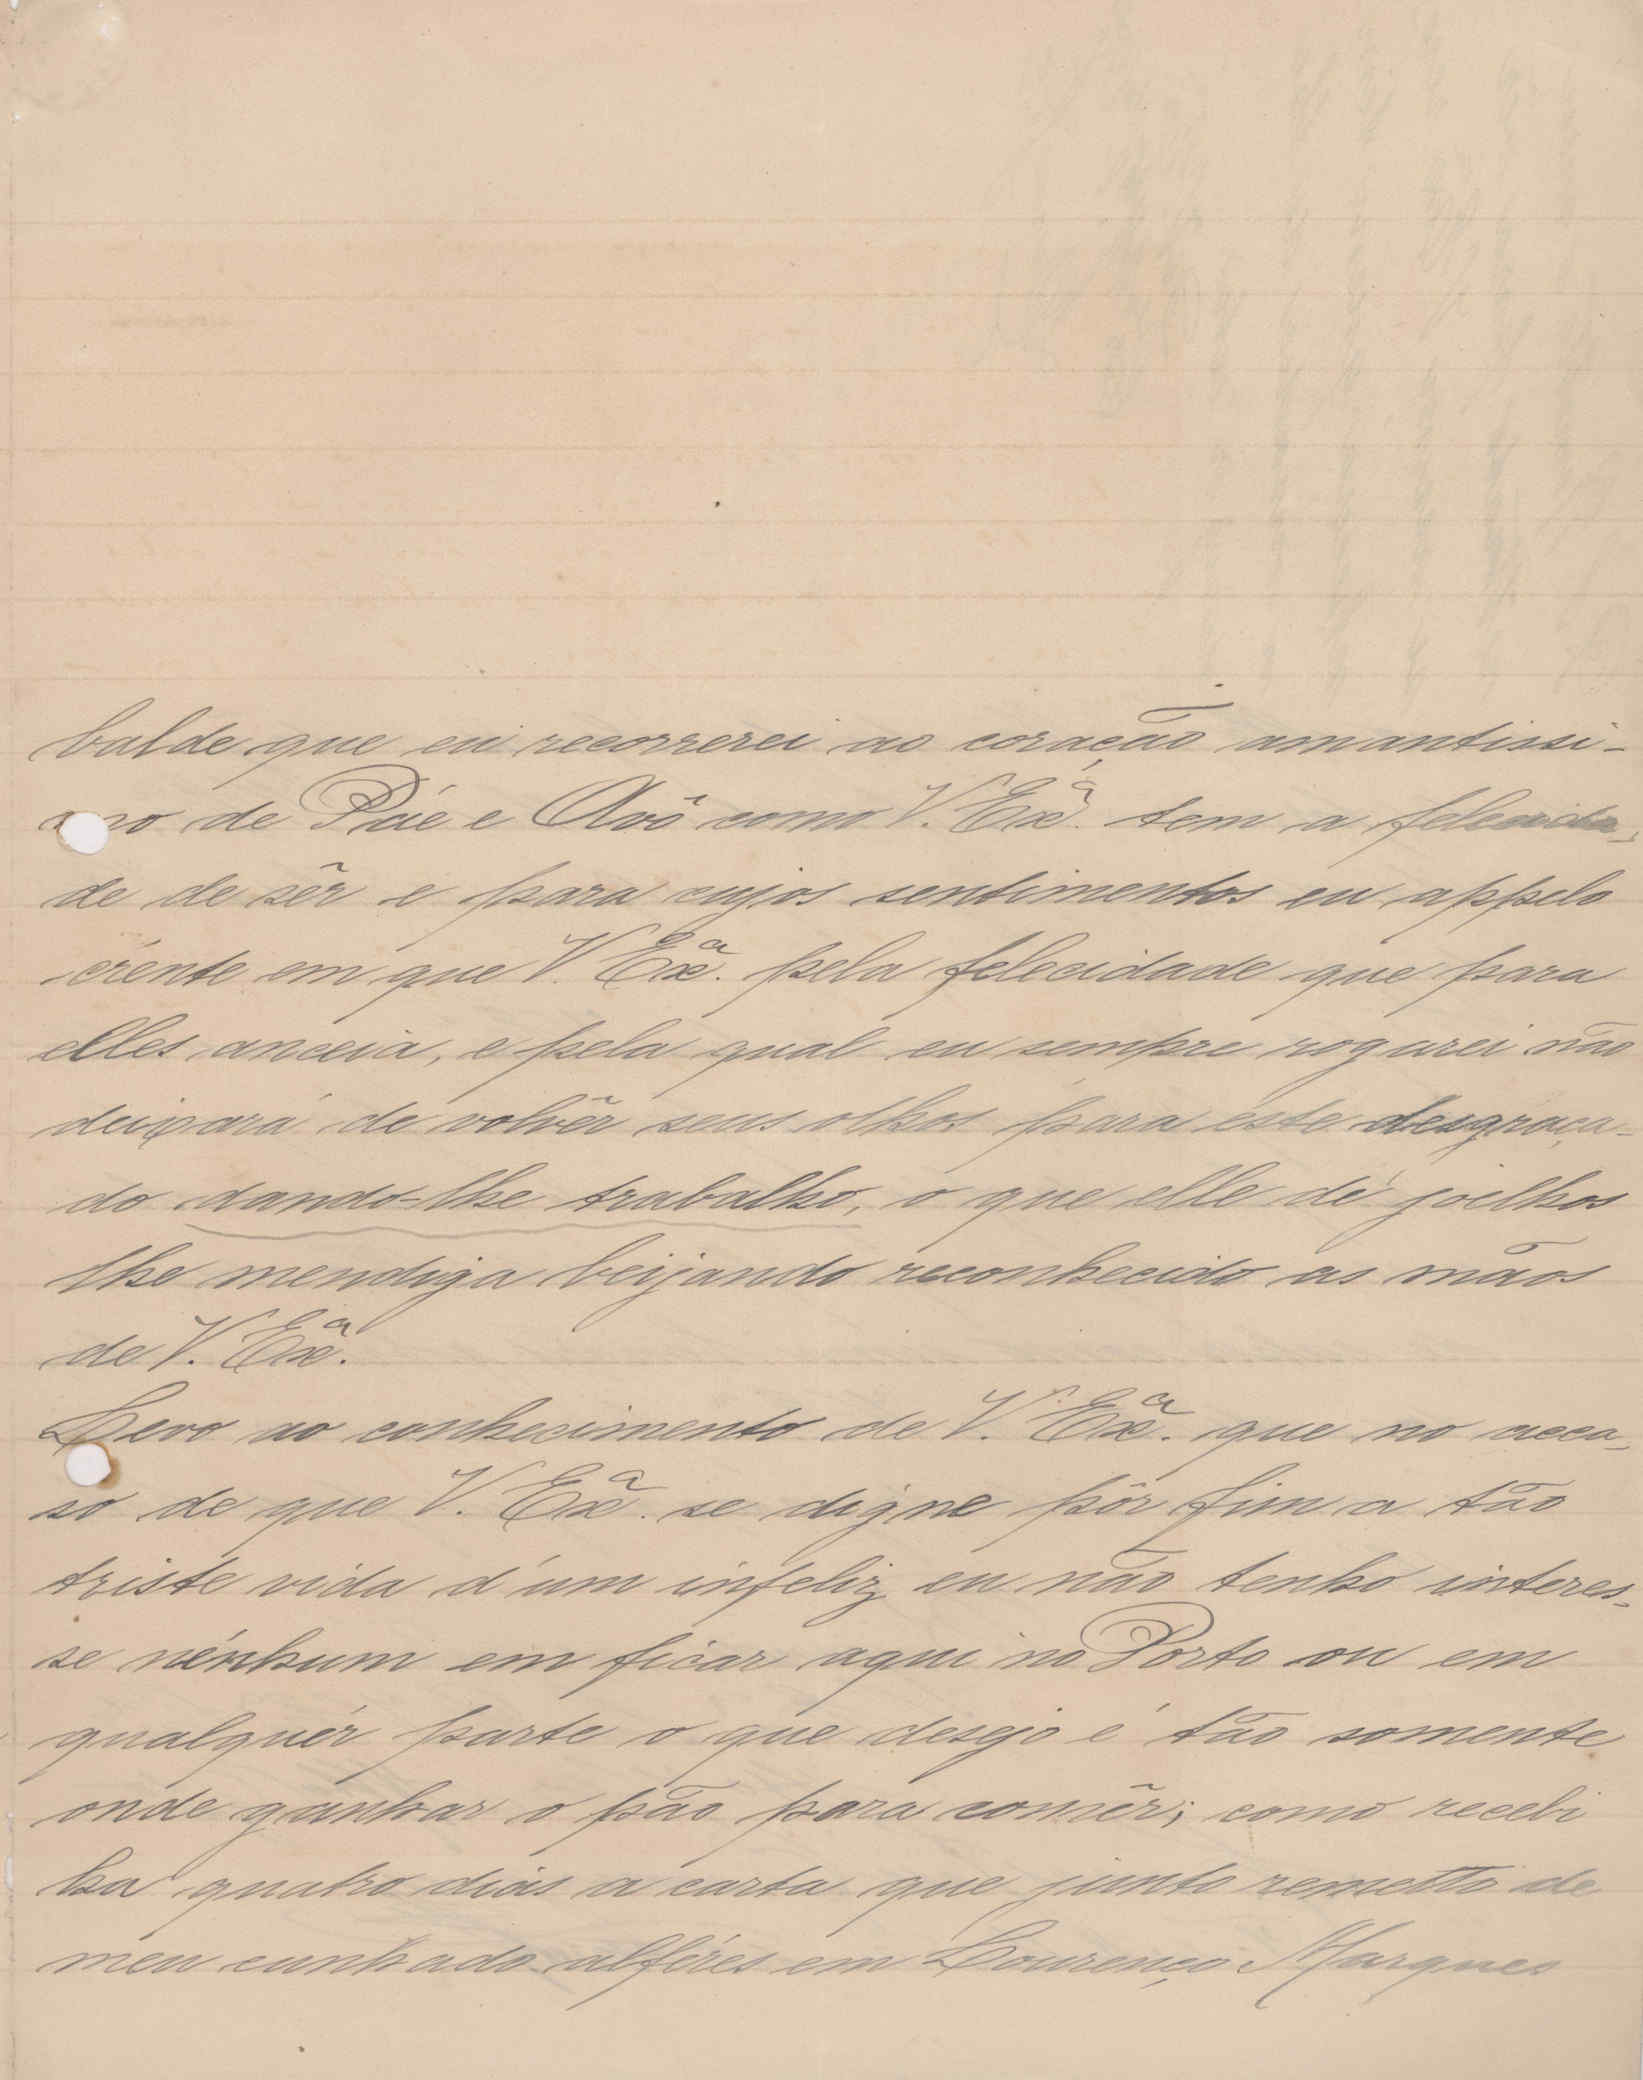 balde que eu recorrerei ao coração amantissi-
mo de Páe e Avô como V. Exª. tem a felecida-
de de sêr e para cujos sentimentos eu appelo
crente em que V. Exª. pela felecidade que para
elles anceia, e pela qual eu sempre rogarei não
deixará de volvêr seus olhos para este desgraça-
do dando-lhe trabalho, o que elle de joelhos
lhe mendiga beijando reconhecido as mãos
de V. Exª.
Levo ao conhecimento de V. Exª. que no acca-
so de que V. Exª. se digne pôr fim a tão
triste vida d'um infeliz eu não tenho interes-
se nénhum em ficar aqui no Porto ou em
qualquér parte o que desejo é tão somente
onde ganhar o pão para comêr; como recebi
ha quatro dias a carta que junto remetto de
meu cunhado alféres em Lourenço Marques